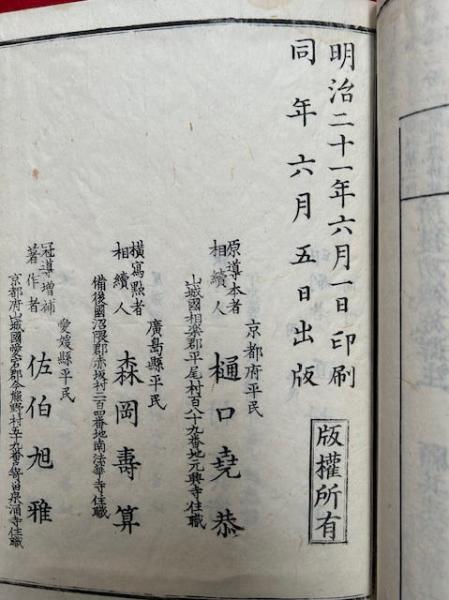 明治二十一年六月一日印刷
同年六月五日出版
版權所有
京都府平民
原導本者
相續人
樋口堯恭
山城國相楽郡平尾村百八十九番地元興寺住職
廣島縣平民
横寫點者
相續人
森岡壽算
備後國沼隈郡赤坂村二百四番地南法華寺住職
愛媛縣平民
冠導增補
著作者
佐伯旭雅
京都府山城國愛宕郡今熊野村五十九番寄留泉涌寺住職